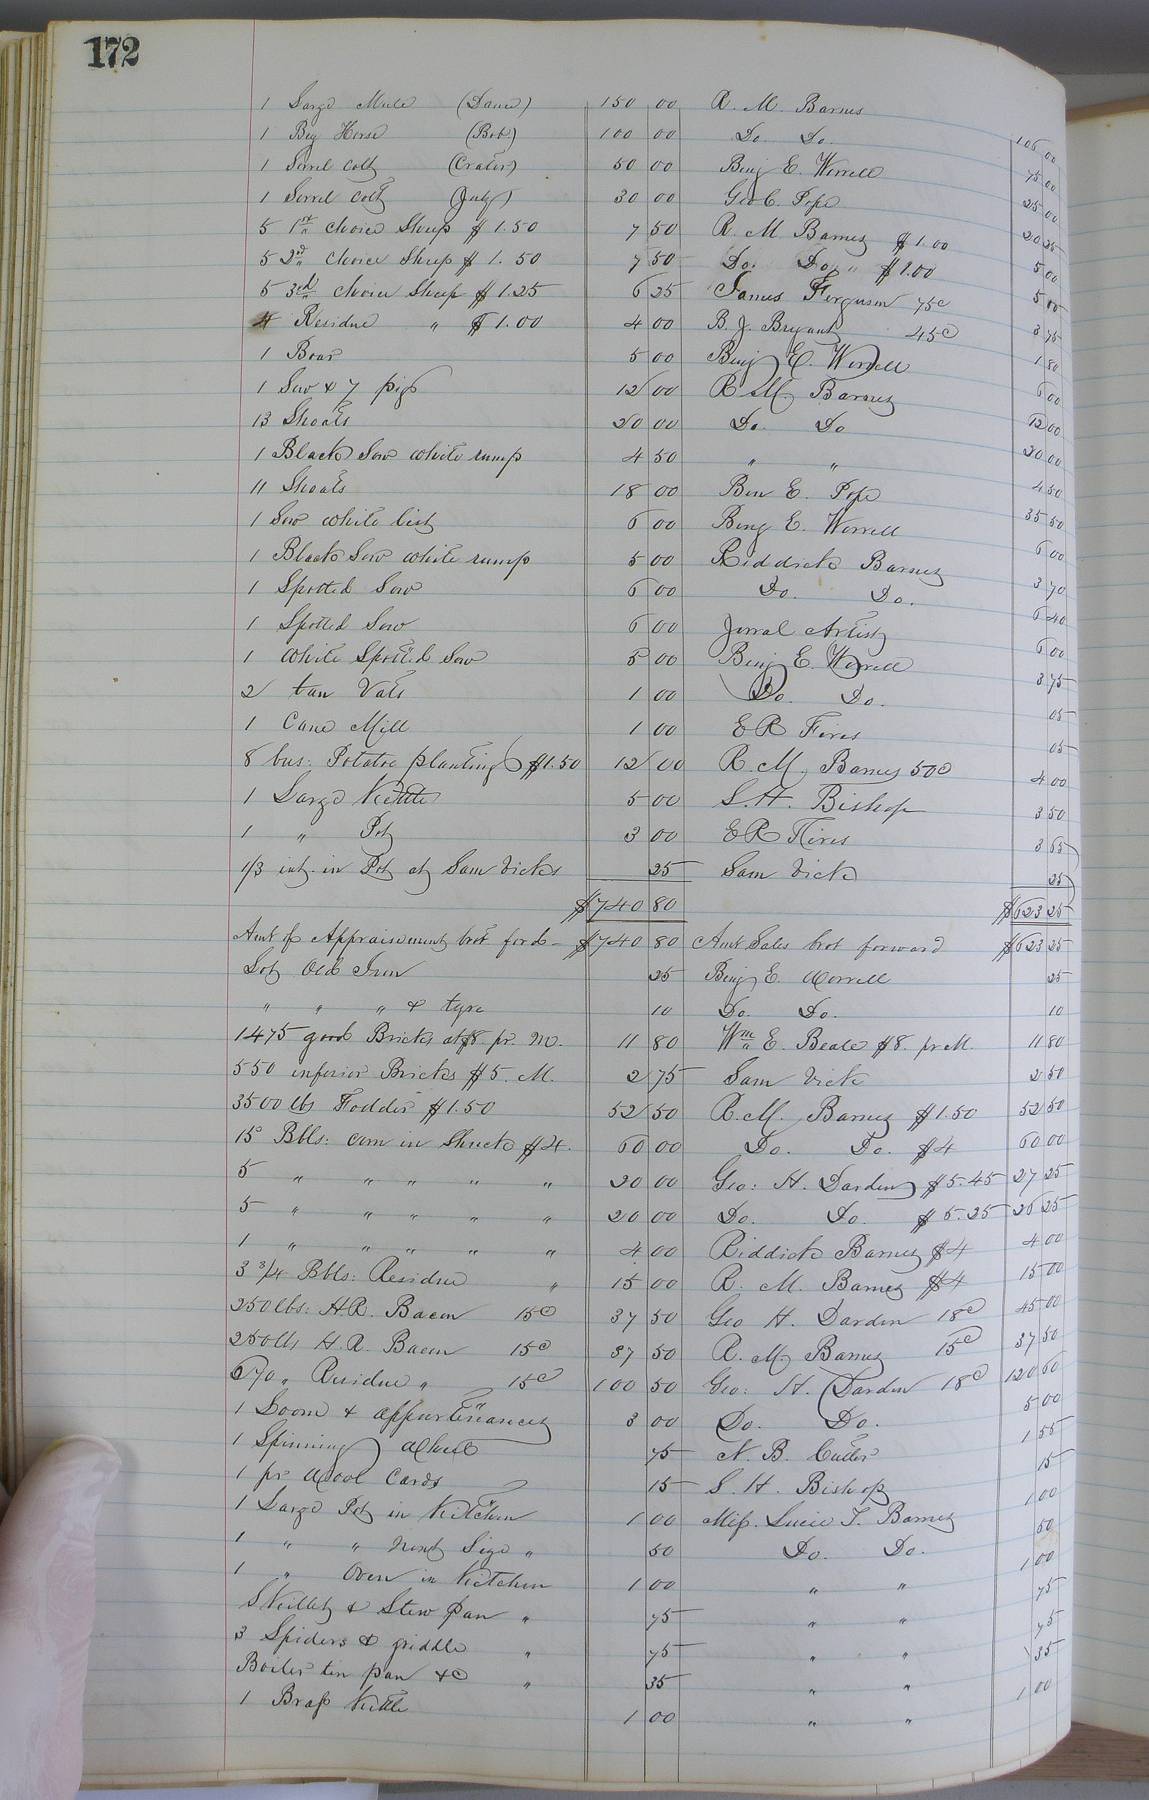 172
1 Large Mule (Dave) 150 00 R. M. Barnes 106 00
1 Bay Horse (Bob) 100 00 Do. Do. 75 00
1 Sorrel Colt (Crater) 50 00 Benj E. Worrell 25 00
1 Sorrel Colt (July) 30 00 Geo C. Pope 20 25
5 1st choice Sheep $1.50 7 50 R. M Barnes $1.00 5 00
5 2d choice Sheep $1.50 7 50 Do. Do. " $1.00 5 00
5 3rd choice Sheep $1.25 6 25 James Ferguson 75c 3 75
4 Residue " $1.00 4 00 B. J. Bryant 45c 1 80
1 Boar 5 00 Benj E. Worrell 6 00
1 Sow & 7 pigs 12 00 R M. Barnes 12 00
13 Shoats 20 00 Do. Do 20 00
1 Black Sow white rump 4 50 " " 4 50
11 Shoats 18 00 Ben E. Pope 35 50
1 Sow white list 6 00 Benj E. Worrell 6 00
1 Black Sow white rump 5 00 Riddick Barnes 3 70
1 Spotted Sow 6 00 Do. Do. 6 40
1 Spotted Sow 6 00 Jorral Artist 6 00
1 White Spotted Sow 5 00 Benj E. Worrell 3 75
2 tan Vats 1 00 Do. Do. 05
1 Cane Mill 1 00 E R 05
8 bus: Potatoe planting $1.50 12 00 R. M. Barnes 50c 4 00
1 Large Kettle 5 00 S. H. Bishop 3 50
1 " Pot 3 00 E R 3 65
1/3 int. in Pot at Sam Vicks 25 Sam Vick 25
$740 80 $623 25
Amt of Appraisement brot ford- $740 80 Amt Sales brot forward $623 25
Lot Old Iron 25 Benj E. Worrell 25
" " " & tyre 10 Do. Do. 10
1475 good Bricks at $8. pr. M. 11 80 Wm E. Beale $8. pr M. 11 80
550 inferior Bricks $5. M. 2 75 Sam Vick 2 50
3500 lbs Fodder $1.50 52 50 R. M. Barnes $1.50 52 50
15 Bbls: corn in Shuck $4. 60 00 Do. Do. $4 60 00
5 " " " " " 20 00 Geo: H. Darden $5.45 27 25
5 " " " " " 20 00 Do. Do. $5.25 26 25
1 " " " " " 4 00 Riddick Barnes $4 4 00
3 3/4 Bbls: Residue " 15 00 R. M. Barnes $4 15 00
250 lbs: H.R. Bacon 15c 37 50 Geo H. Darden 18c 45 00
250 lbs H. R. Bacon 15c 37 50 R. M. Barnes 15c 37 50
670 " Residue " 15c 100 50 Geo: H. Darden 18c 120 60
1 Loom & appurtenances 3 00 Do. Do. 5 00
1 Spinning Wheel 75 N. B. Cutler 1 55
1 pr Wool Cards 15 S. H. Bishop 15
1 Large Pot in Kitchen 1 00 Miss. Lucie T. Barnes 1 00
1 " " Next Size " 50 Do. Do. 50
1 " Oven in Kitchen 1 00 " " 1 00
Skillet & Stew pan " 75 " " 75
3 Spiders & griddle " 75 " " 75
Boiler tin pan &c " 35 " " 35
1 Brass Kettle 1 00 " " 1 00